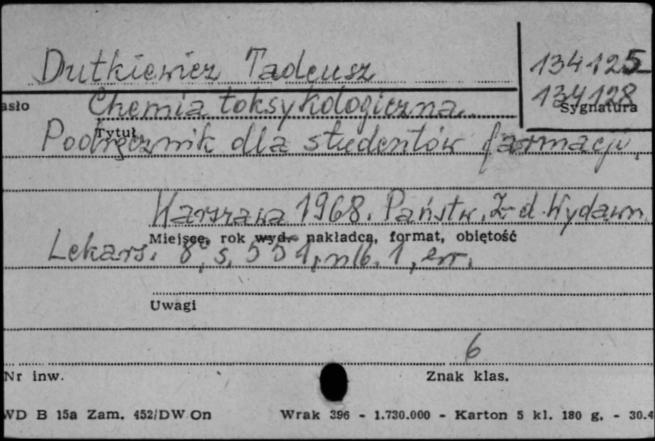 Dutkiewicz Tadeusz
134125
134128
asło
Chemia toksykologiczna.
Sygnatura
Tytuł
Podręcznik dla studentów farmacji.
Warszawa 1968. Państw. Z-d Wydawn.
Miejsce, rok wyd. nakładca, format, objętość
Lekars. 8°, s. 551, nlb. 1, err.
Uwagi
6
Nr inw.
Znak klas.
WD B 15a Zam. 452/DW On
Wrak 396 - 1.730.000 - Karton 5 kl. 180 g. - 30.4